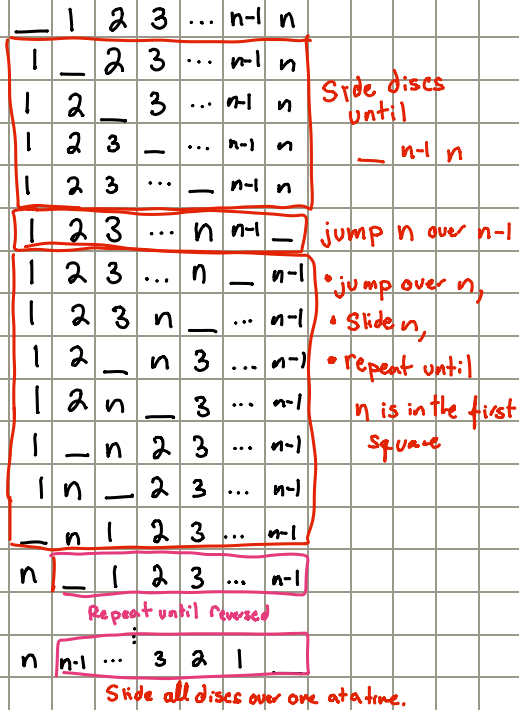 __ 1 2 3 ... n-1 n
1 __ 2 3 ... n-1 n
1 2 __ 3 ... n-1 n
1 2 3 __ ... n-1 n
1 2 3 ... __ n-1 n
Slide discs
until
__ n-1 n
1 2 3 ... n n-1 __
jump n over n-1
1 2 3 ... n __ n-1
1 2 3 n __ ... n-1
1 2 __ n 3 ... n-1
1 2 n __ 3 ... n-1
1 __ n 2 3 ... n-1
1 n __ 2 3 ... n-1
__ n 1 2 3 ... n-1
• jump over n,
• Slide n,
• repeat until
n is in the first
square
n __ 1 2 3 ... n-1
Repeat until reversed
⋮
n n-1 ... 3 2 1 __
Slide all discs over one at a time.